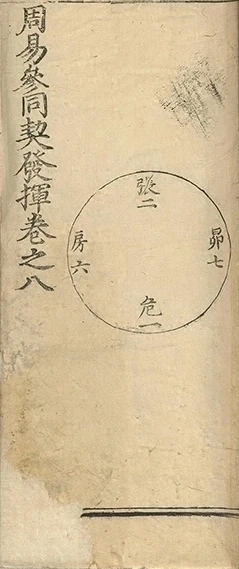 周易參同契發揮卷之八
張二
昴七
房六
危一